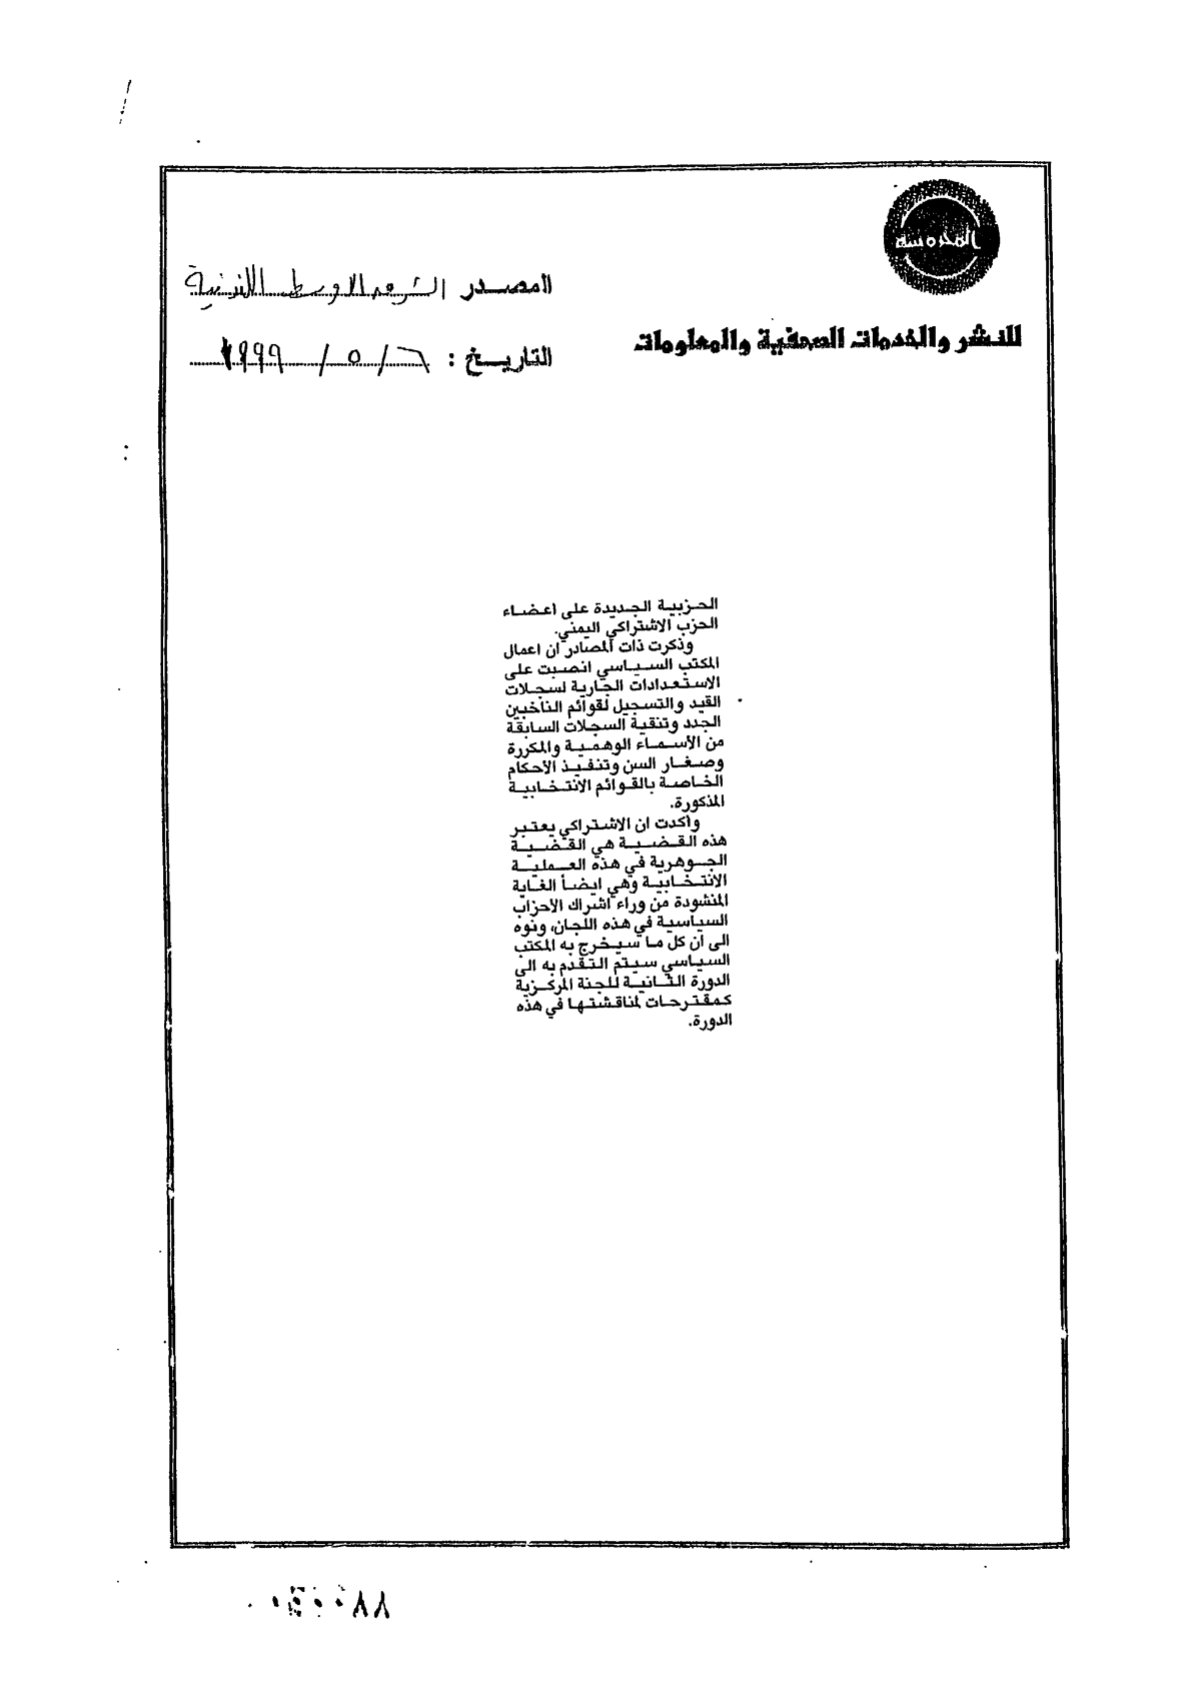 المحروسة
المصدر الشرق الاوسط اللندنية
للنشر والخدمات الصحفية والمعلومات
التاريخ : ٦ / ٥ / ١٩٩٩
الحزبية الجديدة على اعضاء
الحزب الاشتراكي اليمني.
وذكرت ذات المصادر ان اعمال
المكتب السياسي انصبت على
الاستعدادات الجارية لسجلات
القيد والتسجيل لقوائم الناخبين
الجدد وتنقية السجلات السابقة
من الأسماء الوهمية والمكررة
وصغار السن وتنفيذ الأحكام
الخاصة بالقوائم الانتخابية
المذكورة.
وأكدت ان الاشتراكي يعتبر
هذه القضية هي القضية
الجوهرية في هذه العملية
الانتخابية وهي ايضاً الغاية
المنشودة من وراء اشراك الأحزاب
السياسية في هذه اللجان، ونوه
الى ان كل ما سيخرج به المكتب
السياسي سيتم التقدم به الى
الدورة الثانية للجنة المركزية
كمقترحات لمناقشتها في هذه
الدورة.